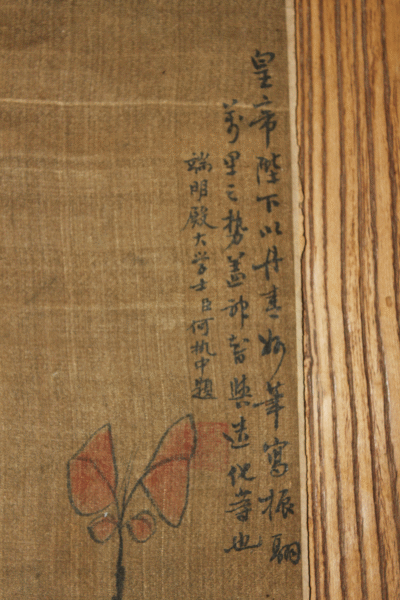 皇帝陛下以丹青妙筆寫振翮
萬里之勢蓋神智與造化等也
端明殿大学士臣何执中題